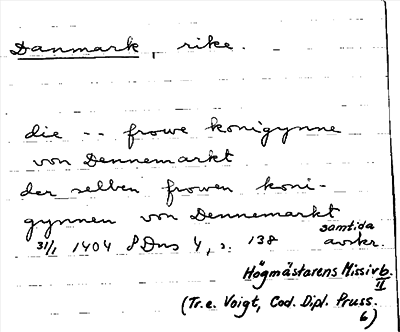 Danmark, rike.
die -- frowe konigynne
von Dennemarkt
der selben frowen koni-
gynnen von Dennemarkt
31/1 1404 SDns 4, s. 138 samtida avskr.
Högmästarens Missivb. II
(Tr. e. Voigt, Cod. Dipl. Pruss. 6)